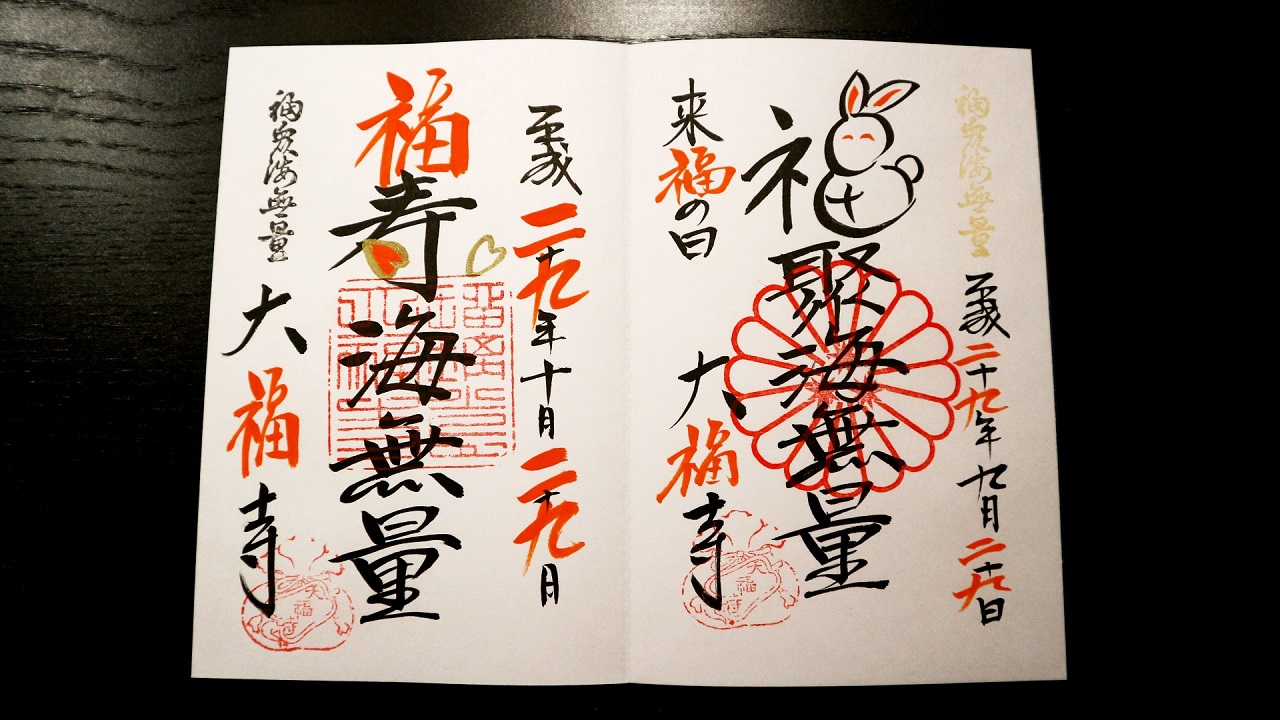 福聚海無量 平成二十九年九月二十九日
福聚海無量
来福の日
大福寺
大福寺
平成二十九年十月二十九月
福寿海無量
福聚海無量
大福寺
大福寺